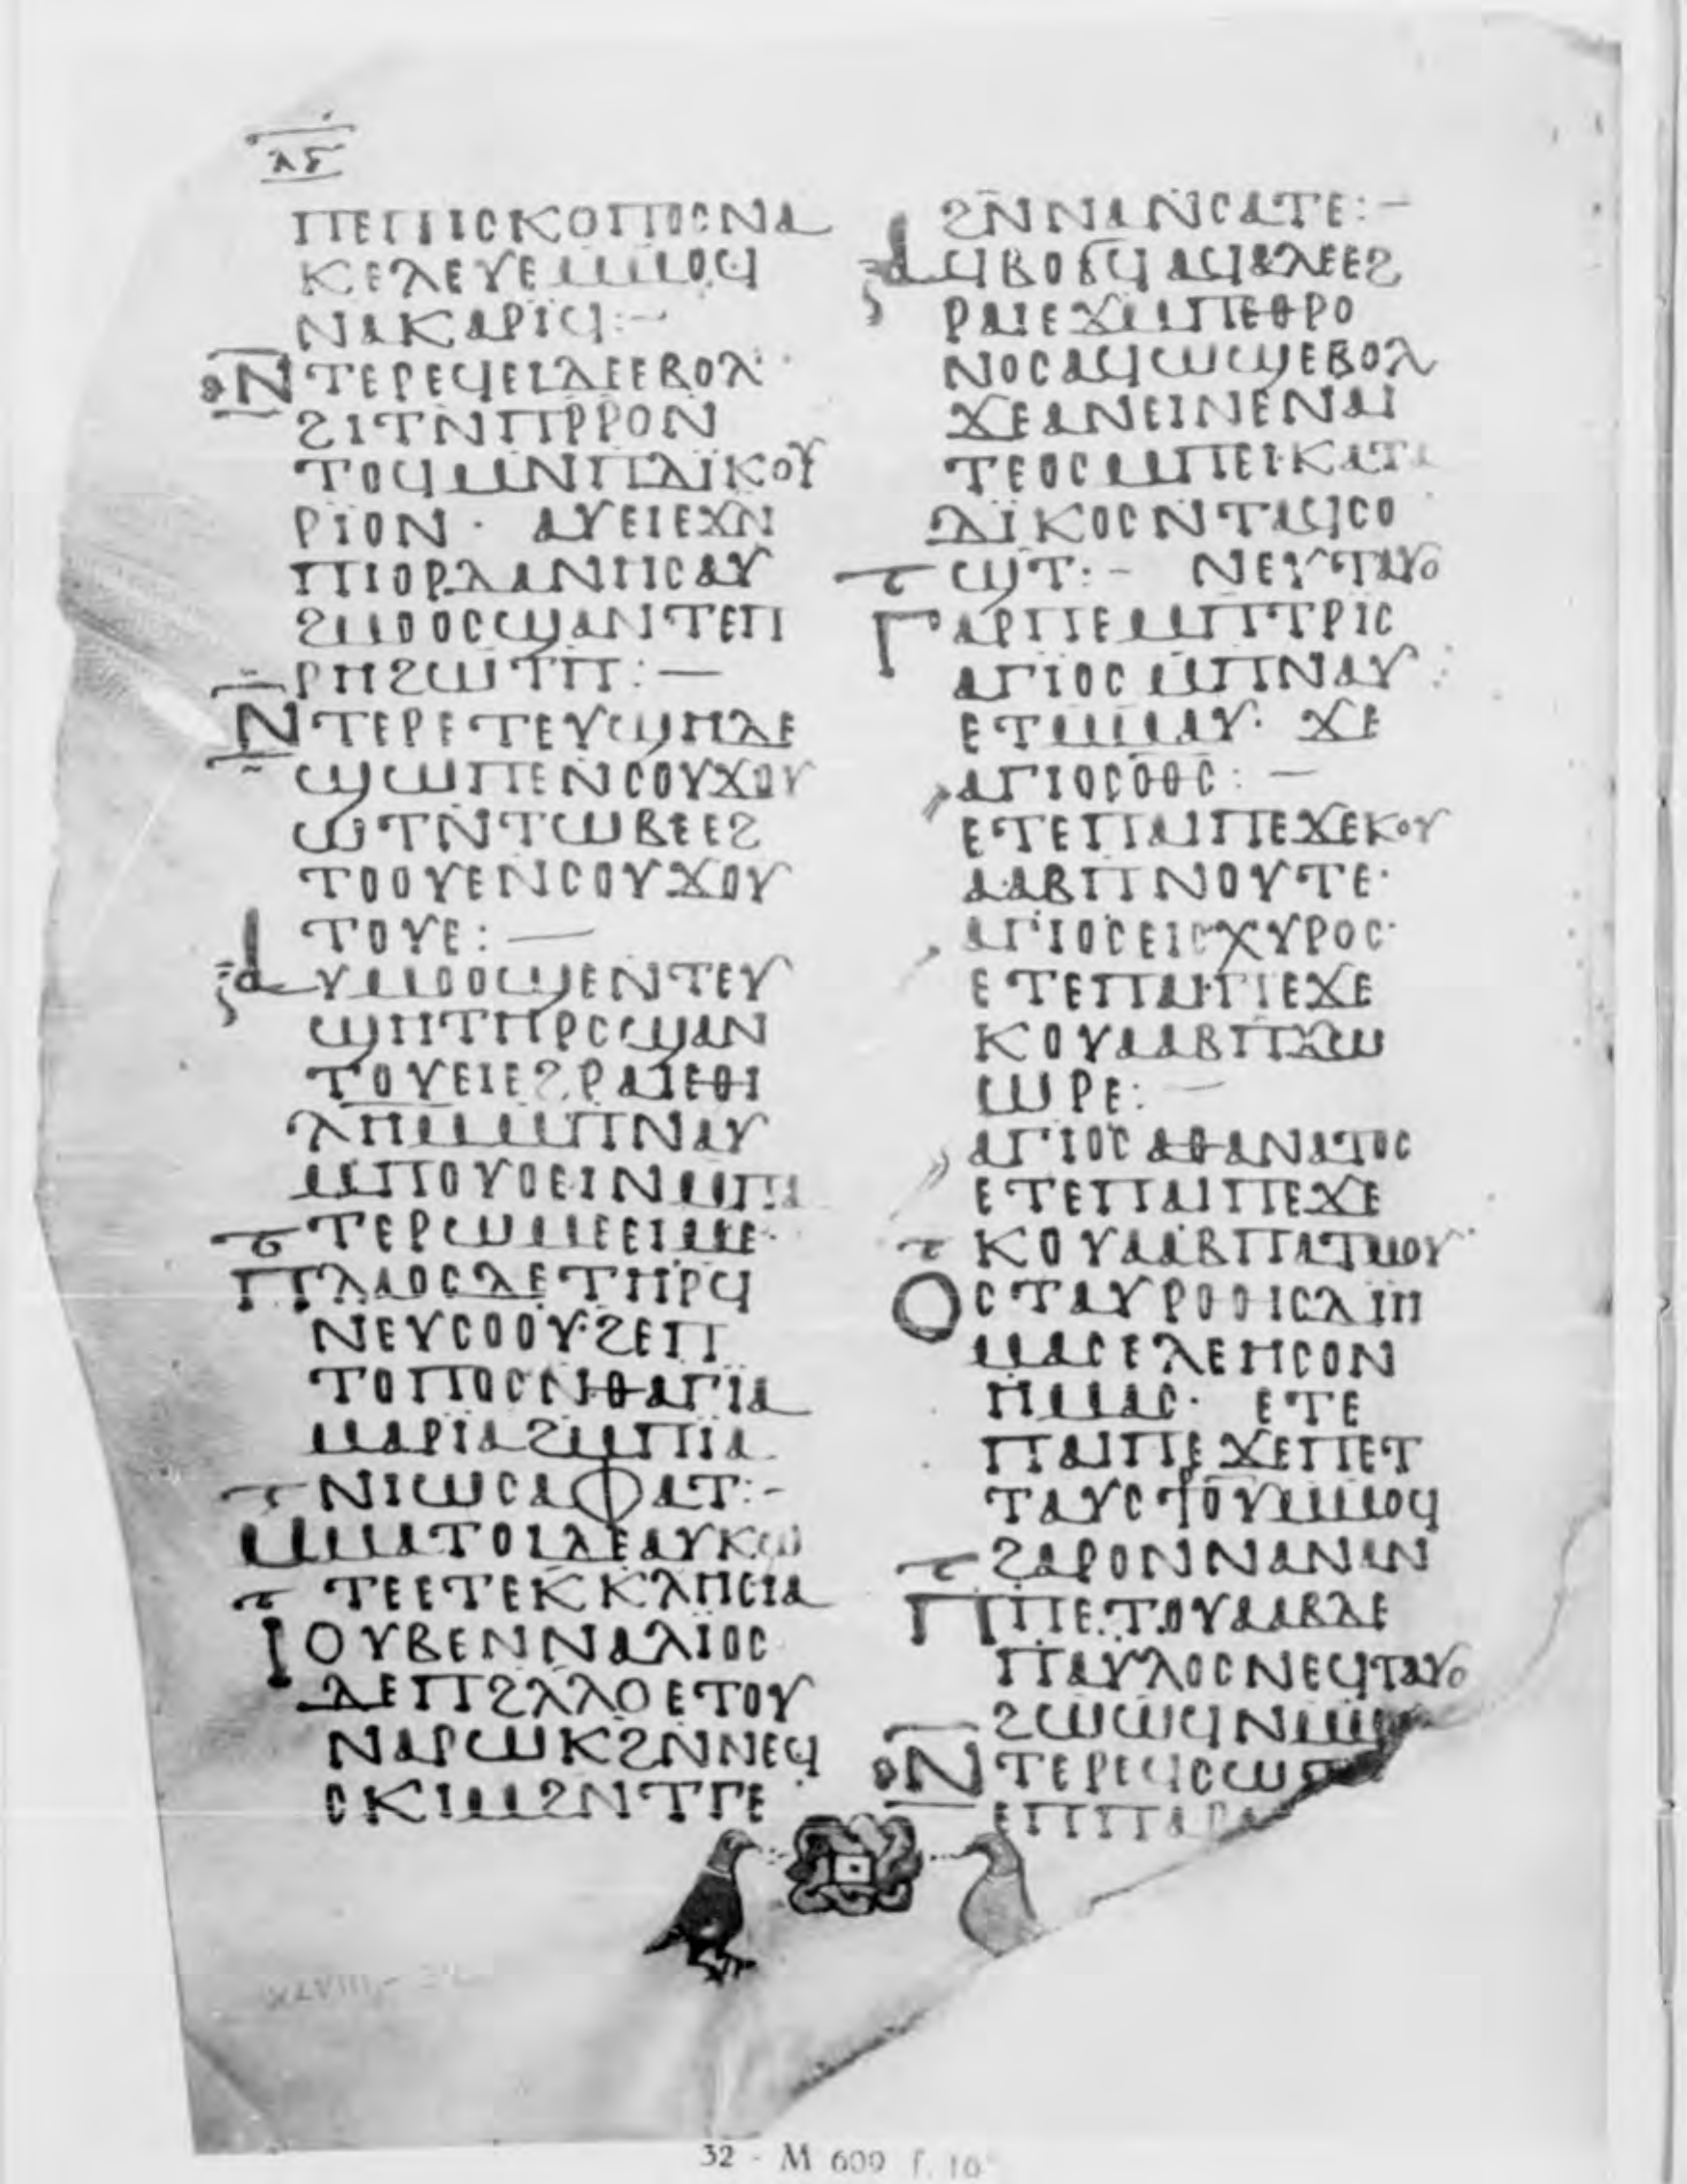 ⲗⲋ
ⲡⲉⲡⲓⲥⲕⲟⲡⲟⲥⲛⲁ
ⲕⲉⲗⲉⲩⲉⲙⲙⲟϥ
ⲛⲁⲕⲁⲣⲓϥ:—
ⲛⲧⲉⲣⲉϥⲉⲓⲇⲉⲉⲃⲟⲗ
ϩⲓⲧⲛⲡⲣⲣⲟⲛ
ⲧⲟϥⲙⲛⲡⲇⲓⲕⲟⲩ
ⲣⲓⲟⲛ· ⲁⲩⲉⲓⲉϫⲛ
ⲡⲓⲟⲣⲇⲁⲛⲏⲥⲁⲩ
ϩⲙⲟⲟⲥϣⲁⲛⲧⲉⲡ
ⲣⲏϩⲱⲧⲡ:—
ⲛⲧⲉⲣⲉⲧⲉⲩϣⲏⲇⲉ
ϣⲱⲡⲉⲛⲥⲟⲩϫⲟⲩ
ⲱⲧⲛⲧⲱⲃⲉⲉϩ
ⲧⲟⲟⲩⲉⲛⲥⲟⲩϫⲟⲩ
ⲧⲟⲩⲉ:—
ⲁⲩⲙⲟⲟϣⲉⲛⲧⲉⲩ
ϣⲏⲧⲏⲣⲥϣⲁⲛ
ⲧⲟⲩⲉⲓⲉϩⲣⲁⲓⲉⲑⲓ
ⲗⲏⲙⲙⲡⲛⲁⲩ
ⲙⲡⲟⲩⲟⲉⲓⲛⲙⲡ
ⲧⲉⲣⲱⲙⲉⲉⲓⲙⲉ·
ⲡⲗⲁⲟⲥⲇⲉⲧⲏⲣϥ
ⲛⲉⲩⲥⲟⲟⲩϩⲉⲡ
ⲧⲟⲡⲟⲥⲛⲑⲁⲅⲓⲁ
ⲙⲁⲣⲓⲁϩⲙⲡⲓⲁ
ⲛⲓⲱⲥⲁⲫⲁⲧ:-
ⲙⲙⲁⲧⲟⲓⲇⲉⲁⲩⲕⲱ
ⲧⲉⲉⲧⲉⲕⲕⲗⲏⲥⲓⲁ
ⲓⲟⲩⲃⲉⲛⲛⲁⲗⲓⲟⲥ
ⲇⲉⲡϩⲗⲗⲟⲉⲧⲟⲩ
ⲛⲁⲣⲱⲕϩⲛⲛⲉϥ
ⲥⲕⲓⲙϩⲛⲧⲡⲉ
ϩⲛⲛⲁⲛⲥⲁⲧⲉ:—
ⲁϥⲃⲟϭϥⲁϥⲁⲗⲉⲉϩ
ⲣⲁⲓⲉϫⲙⲡⲉⲑⲣⲟ
ⲛⲟⲥⲁϥⲱϣⲉⲃⲟⲗ
ϫⲉⲁⲛⲉⲓⲛⲉⲛⲁⲓ
ⲧⲉⲟⲥⲙⲡⲉⲓⲕⲁⲧⲁ
ⲇⲓⲕⲟⲥⲛⲧⲁϥⲥⲟ
ϣⲧ:- ⲛⲉⲩⲧⲁⲩⲟ
ⲅⲁⲣⲡⲉⲙⲡⲧⲣⲓⲥ
ⲁⲅⲓⲟⲥⲙⲡⲛⲁⲩ
ⲉⲧⲙⲙⲁⲩ· ϫⲉ
ⲁⲅⲓⲟⲥⲟⲑⲥ:—
ⲉⲧⲉⲡⲁⲓⲡⲉϫⲉⲕⲟⲩ
ⲁⲁⲃⲡⲛⲟⲩⲧⲉ·
ⲁⲅⲓⲟⲥⲉⲓⲥⲭⲩⲣⲟⲥ·
ⲉⲧⲉⲡⲁⲓⲡⲉϫⲉ
ⲕⲟⲩⲁⲁⲃⲡϫⲱ
ⲱⲣⲉ:—
ⲁⲅⲓⲟⲥⲁⲑⲁⲛⲁⲧⲟⲥ
ⲉⲧⲉⲡⲁⲓⲡⲉϫⲉ
ⲕⲟⲩⲁⲁⲃⲡⲁⲧⲙⲟⲩ
ⲟⲥⲧⲁⲩⲣⲟⲑⲓⲥⲇⲓⲏ
ⲙⲁⲥⲉⲗⲉⲏⲥⲟⲛ
ⲏⲙⲁⲥ· ⲉⲧⲉ
ⲡⲁⲓⲡⲉϫⲉⲡⲉⲧ
ⲧⲁⲩⲥϯⲟⲩⲙⲙⲟϥ
ϩⲁⲣⲟⲛⲛⲁⲛⲁⲛ
ⲡⲡⲉⲧⲟⲩⲁⲁⲃⲇⲉ
ⲡⲁⲩⲗⲟⲥⲛⲉϥⲧⲁⲩⲟ
ϩⲱⲱϥⲛⲙⲙ
ⲛⲧⲉⲣⲉϥⲥⲱⲧ
ⲉⲡⲡⲁⲣⲁ
32 - M 600 f. 16